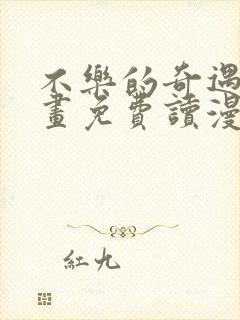 不樂的奇遇
畫免費讀漫
紅九